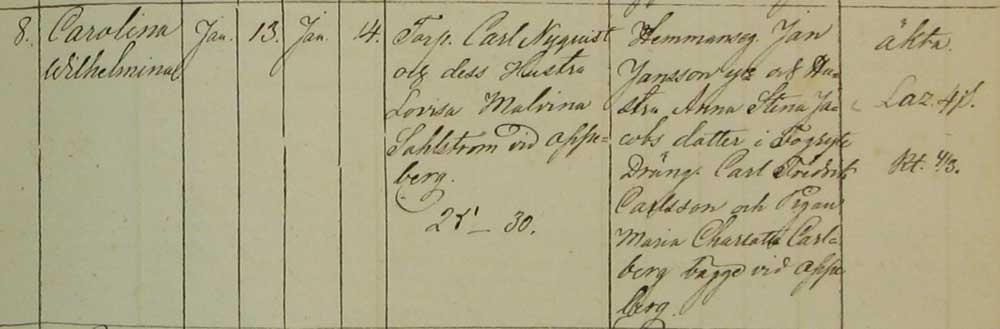 8. Carolina Wilhelmina
Jan. 13. Jan. 14.
Torp. Carl Nyquist
och dess Hustru
Lovisa Malvina
Sahlstrom vid Appe-
berg.
28 - 30.
Hemmanseg. Jan
Jansson och Hu-
stru Anna Stina Ja-
cobs dotter i
Dräng. Carl Fredrik
Carlsson och Pigan
Maria Charlotta Carl-
berg bagge vid Appe
berg.
äkta.
Laz.
Kt. 4/3.